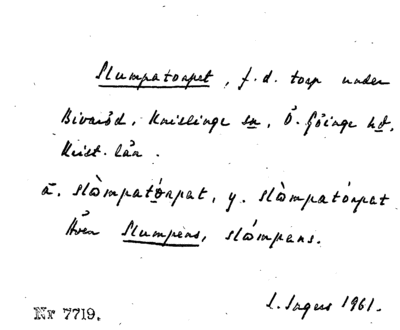 Slumpatorpet, f.d. torp under
Bivaröd, Knislinge sn, Ö. Göinge hd.
Krist. län.
ä. slòmpatårpat, y. slòmpatårpat
Även Slumpens, slómpens.
S. Ingers 1961.
Nr 7719.